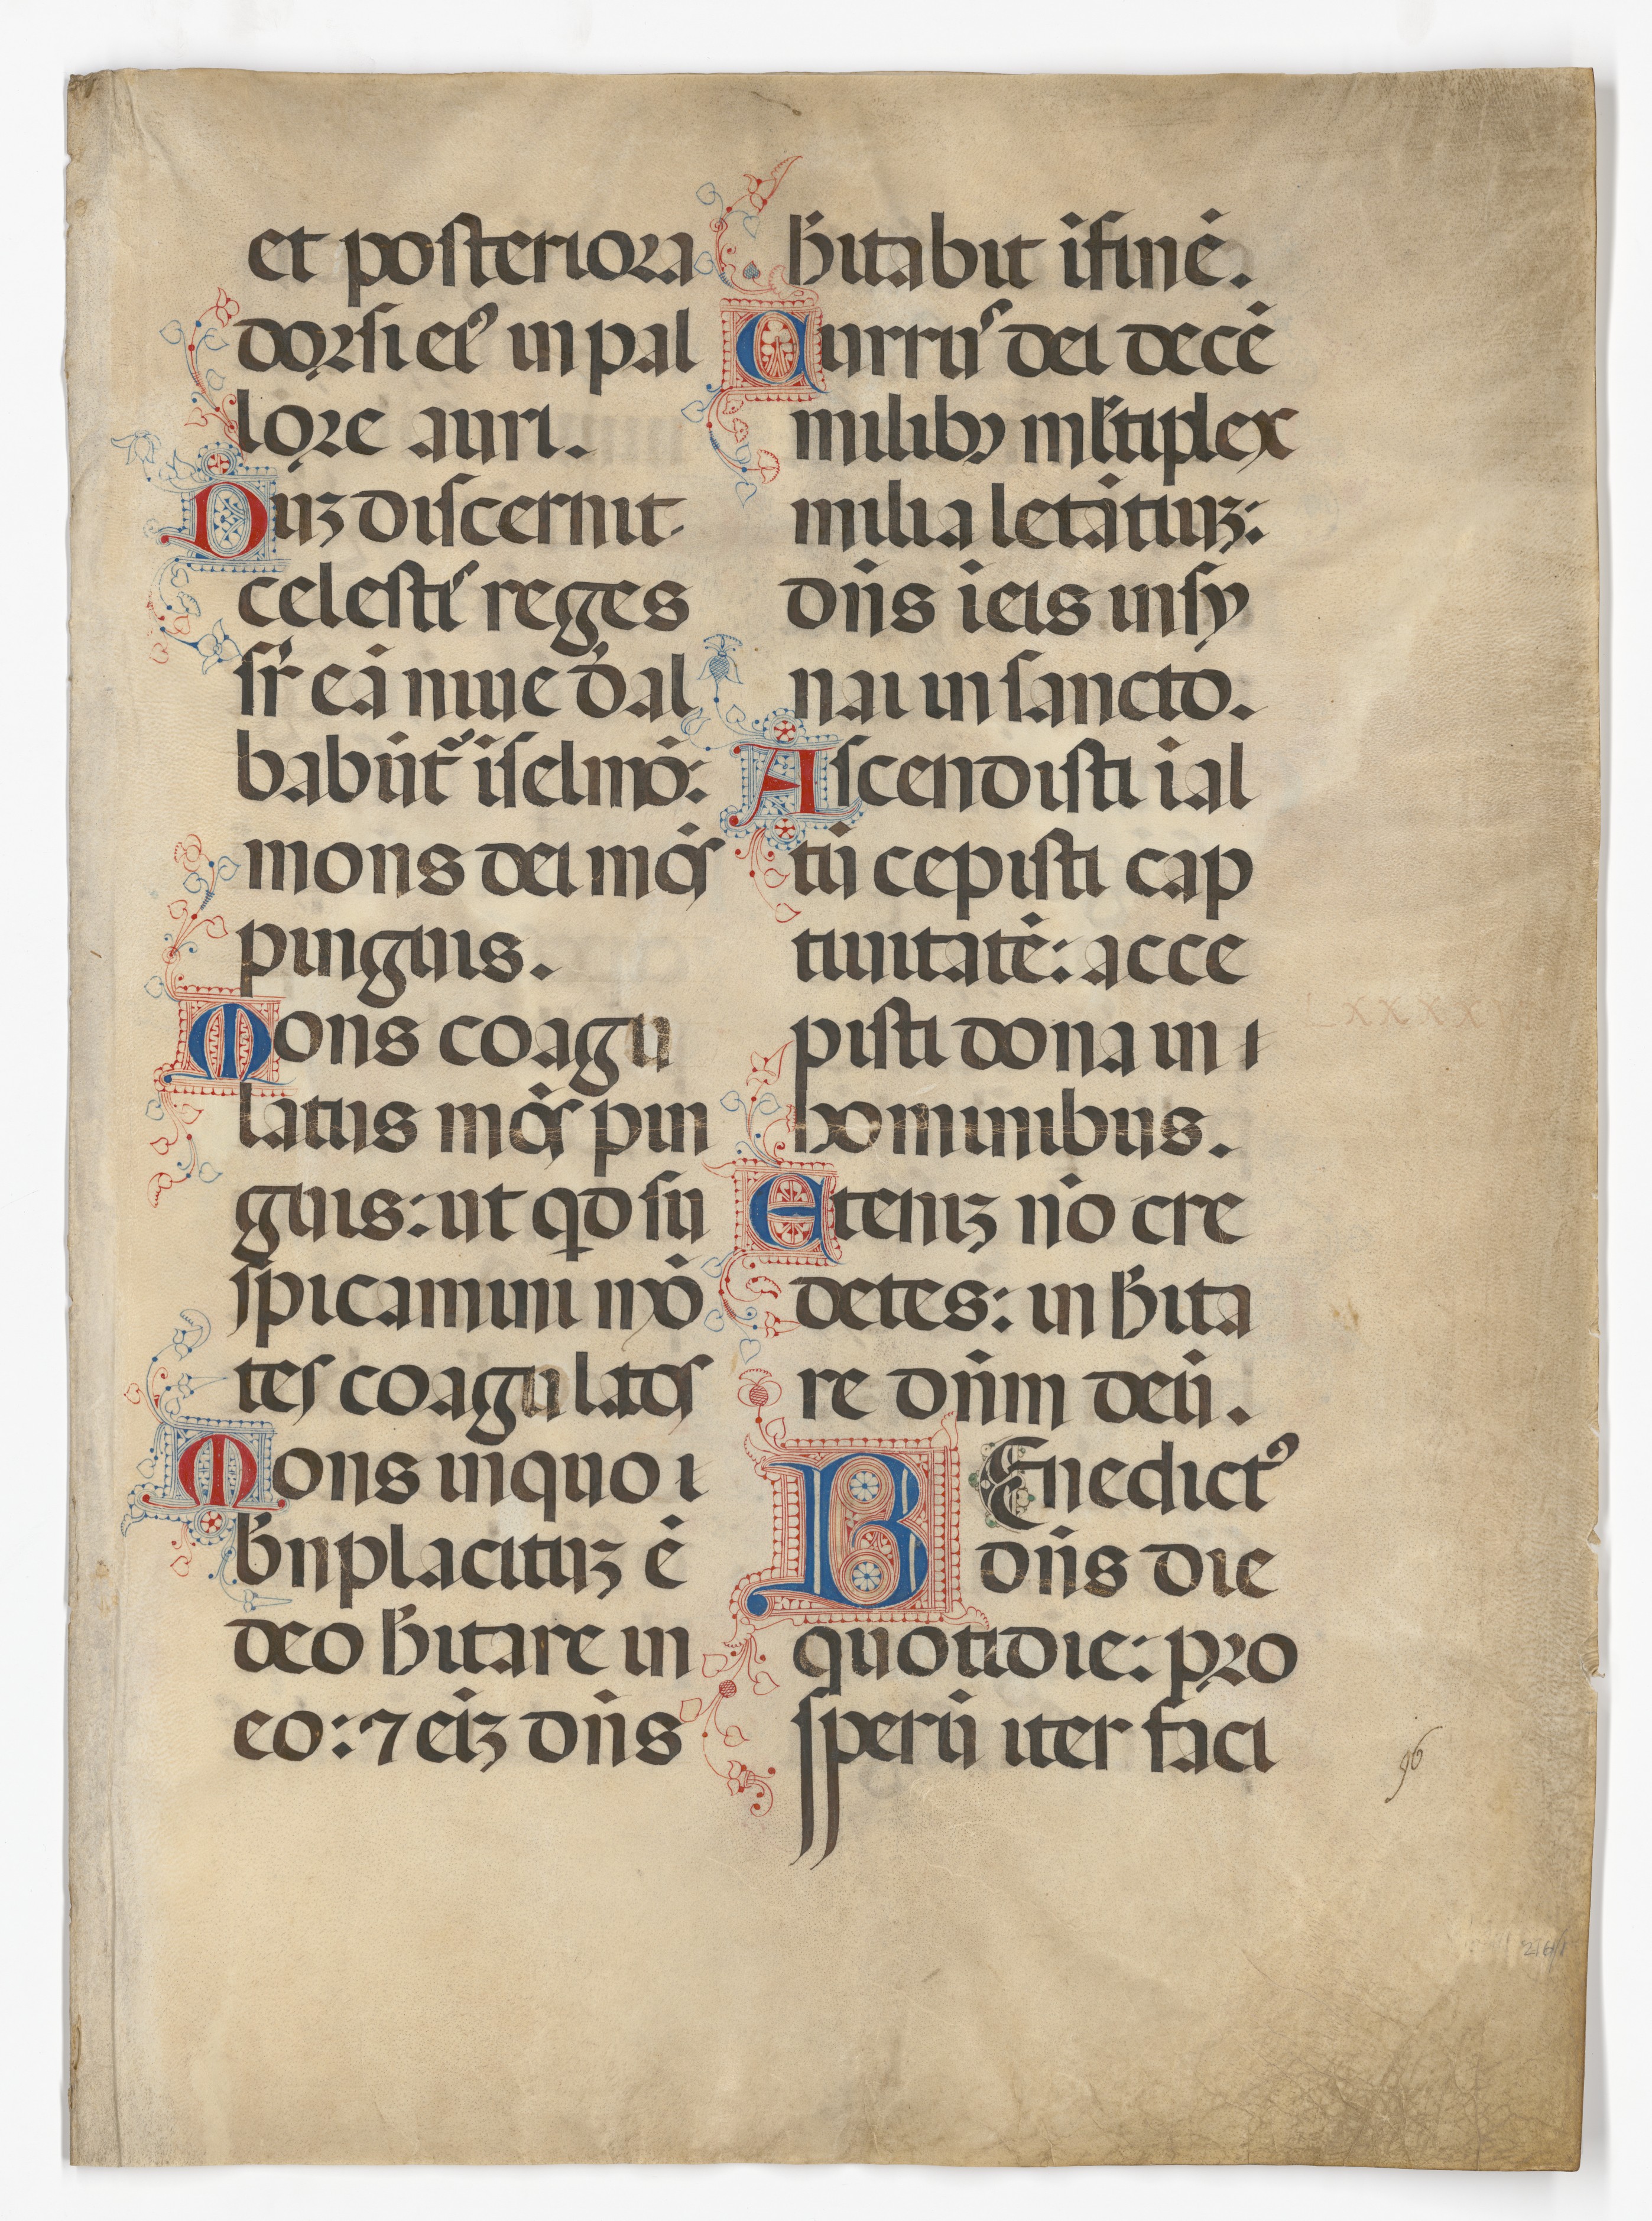 et posteriora
dorsi eiꝰ in pal
lore auri.
Duꝫ discernit
celestiˢ reges
sr̄ eā niue d̄al
babūt᷑ ī selmō:
mons dei mōs
pinguis.
Mons coagu
latus mōs pin
guis: ut qd su
spicamini mō
tes coagulatos
Mons in quo ı
bn̄placituꝫ ē
deo ħitare in
eo: ⁊ eīꝫ dn̄s
ħitabit ī finē.
Curruˢ dei decē
milibꝫ ml̄tiplex
milia letātiuꝫ:
dn̄s ī eis in sy
nai in sancto.
Ascendisti ī al
tū cepisti cap
tiuitatē: acce
pisti dona in ı
hominibus.
Eteniꝫ nō cre
dētes: in ħita
re dn̄m deū.
BEnedictꝰ
dn̄s die
quotidie: pro
sperū iter faci
96